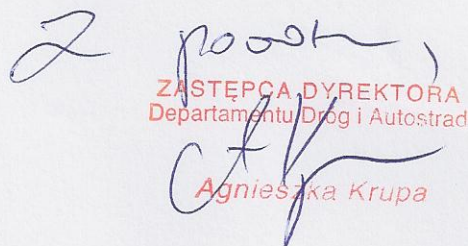 Z
ZASTĘPCA DYREKTORA
Departamentu Dróg i Autostrad
Agnieszka Krupa